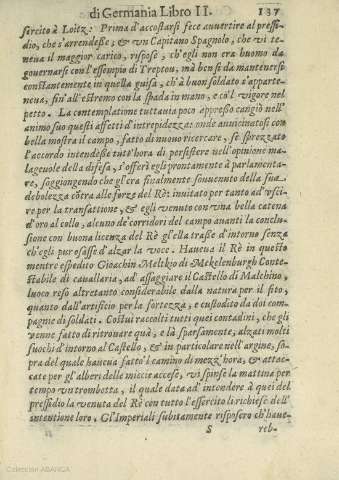 di Germania Libro II. 137
sercito à Loitz: Prima d'accostarsi fece auuertire al presi-
dio, che s'arendesse, & vn Capitano Spagnolo, che vi te-
neua il maggior carico, rispose, ch'egli non era buomo da
gouernarsi con l'essempio di Treptou, mà ben sè da mantenersi
constantemente in quella guisa, ch'à buon soldato s'apparte-
neua, fin' all'estremo con la spada in mano, e co'l vigore nel
petto. La contemplatione tuttauia poco appresso cangiò nell'
animo suo questi affetti d'intrepidezza; onde auuicinatosi con
bella mostra il campo, fatto di nuouo ricercare, se sprezzato
l'accordo intendesse tutt'hora di persistere nell'opinione ma-
lageuole della difesa, s'offerì egli prontamente à parlamenta-
re, soggiongendo che gl'era finalmente souuenuto della sua
debolezza cōtra alle forze del Rè: inuitato per tanto ad vsci-
re per la transattione, & egli venuto con vna bella catena
d'oro al collo, alcuno de' corridori del campo auanti la conclu-
sione con buona licenza del Rè gl'ella trasse d'intorno senza
ch'egli pur osasse d'alzar la voce. Haueua il Rè in questo
mentre espedito Gioachin Meltkio di Mekelenburgh Conte-
stabile di cauallaria, ad assaggiare il Castello di Malchino,
luoco reso altretanto considerabile dalla natura per il sito,
quanto dall'artificio per la fortezza, e custodito da doi com-
pagnie di soldati. Costui raccolti tutti quei contadini, che gli
venne fatto di ritrouare quà, e là sparsamente, alzati molti
fuochi d'intorno al Castello, & in particolare nell'argine, so-
pra del quale haueua fatto l'camino di mezz'hora, & attac-
cate per gl'alberi delle miccie accese, vi spinse la mattina per
tempo vn trombetta, il quale data ad intendere à quei del
pressidio la venuta del Rè con tutto l'essercito li richiese dell'
intentione loro. Gl'Imperiali subitamente risposero ch'haue-
S reb-
Colección ABANCA